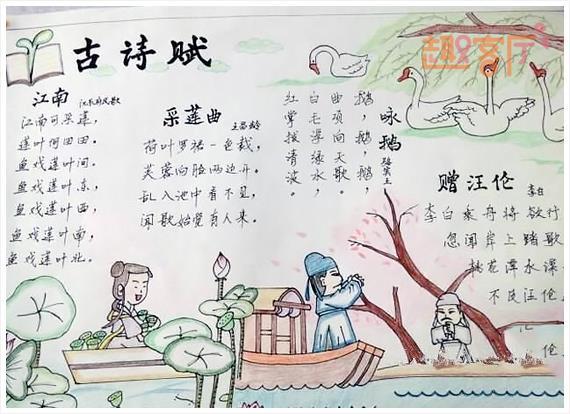 古诗赋
趣客厅
江南
江南可采莲,
莲叶何田田.
鱼戏莲叶间.
鱼戏莲叶东,
鱼戏莲叶西,
鱼戏莲叶南,
鱼戏莲叶北.
采莲曲 王昌龄
荷叶罗裙一色裁,
芙蓉向脸两边开.
乱入池中看不见,
闻歌始觉有人来.
咏鹅 骆宾王
鹅，鹅，鹅，
曲项向天歌，
白毛浮绿水，
红掌拨清波。
赠汪伦 李白
李白乘舟将欲行
忽闻岸上踏歌
桃花潭水深
不及汪伦
伦